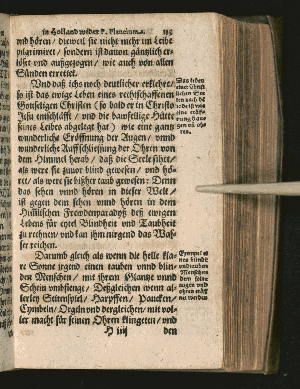 in Holland wider P. Plancium. 119
und hören / dieweil sie nicht mehr im Leibe
pilgrimiret / sondern ist davon gäntzlich er-
löst und außgezogen / wie auch von allen
Sünden errettet.
Und daß ichs noch deutlicher erklehre /
so ist das ewige Leben eines rechtschaffenen
Gottseligen Christen (so bald er in Christo
Jesu einschläfft / und die bawfellige Hütte
seines Leibes abgelegt hat) wie eine gantz
wunderliche Eröffnung der Augen / unnd
wunderliche Auffschliessung der Ohren von
dem Himmel herab / daß die Seele sihet /
als were sie zuvor blind gewesen / und hö-
ret / als were sie bißher taub gewesen: Denn
das sehen unnd hören in dieser Welt /
ist gegen dem sehen unnd hören in dem
Himlischen Frewdenparadyß deß ewigen
Lebens für eitel Blindheit und Taubheit
zu rechnen / und kan ihm nirgend das Was-
ser reichen.
Darumb gleich als wenn die helle kla-
re Sonne irgend einen tauben unnd blin-
den Menschen / mit ihrem Glantze unnd
Schein umbfienge / Deßgleichen wenn al-
lerley Seitenspiel / Harpffen / Paucken /
Cymbeln / Orgeln und dergleichen / mit vol-
ler macht für seinen Ohren klingeten / und
H iiij den
Das leben
einer Christ-
lichen See-
len nach
tode ist wie
eine eröff-
nung der au-
gen un oh-
ren.
Exempel ei-
nes blinden
und tauben
Menschen
dem seine
augen und
ohren eröff-
net werden